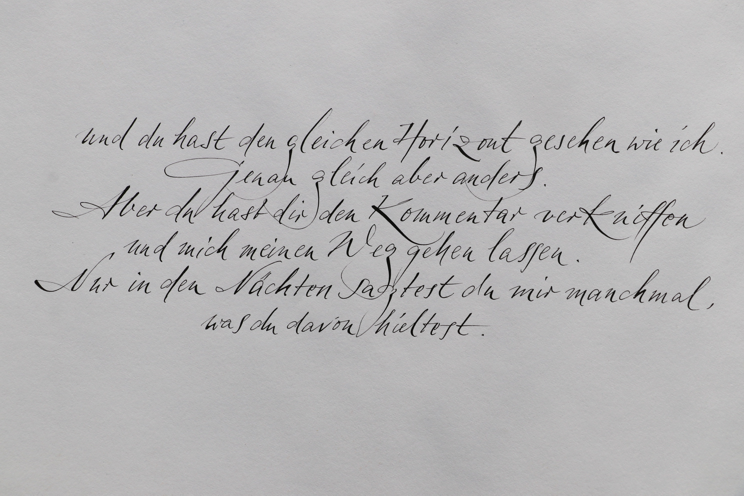 und du hast den gleichen Horizont gesehen wie ich.
Genau gleich aber anders.
Aber du hast dir den Kommentar verkniffen
und mich meinen Weg gehen lassen.
Nur in den Nächten sagtest du mir manchmal,
was du davon hieltest.